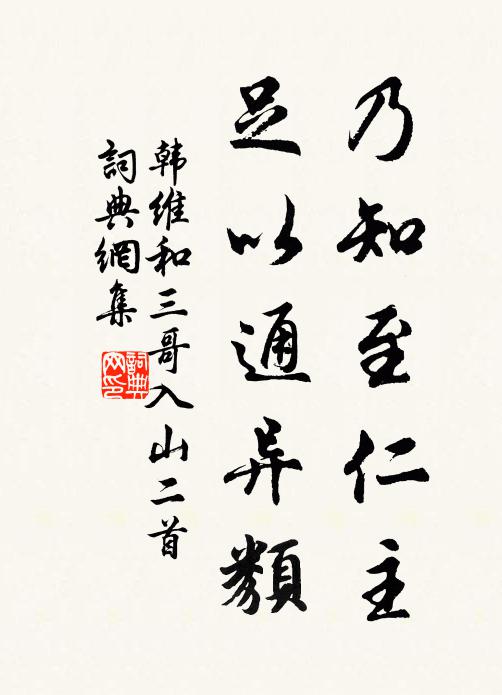 乃知至仁主
足以通异類
韩维和三哥入山二首
詞典網集
詞典网印